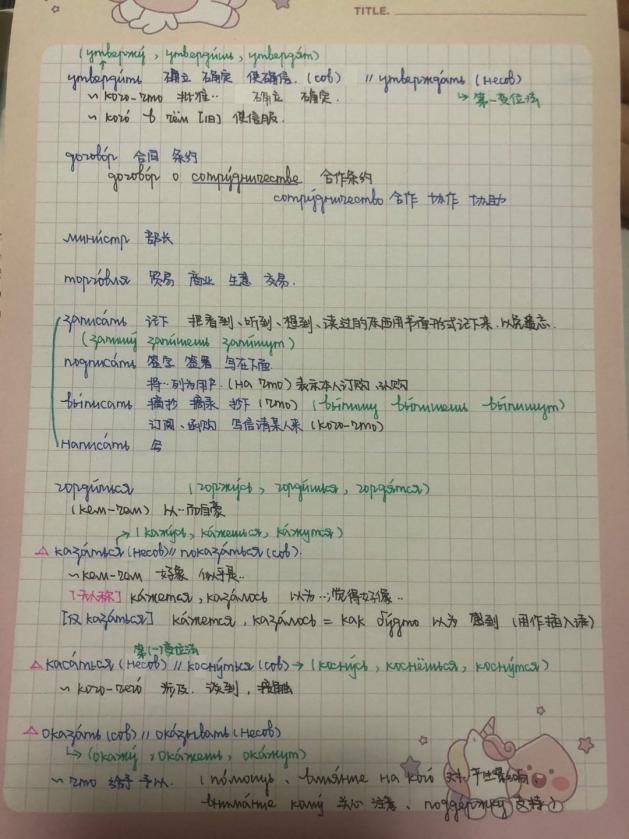 TITLE.
(утвержу́, утверди́шь, утвердя́т)
утверди́ть 确立 确定 使确信. (сов) // утвержда́ть (несов)
~ кого-что 批准.. 确立 确定.
→ 第一变位法
~ кого́ в чём [旧] 使信服.
догово́р 合同 条约
догово́р о сотру́дничестве 合作条约
сотру́дничество 合作 协作 协助
мини́стр 部长
торго́вля 贸易 商业 生意 交易.
записа́ть 记下 把看到、听到、想到、读过的东西用书面形式记下来.以免遗忘.
(запишу́ запи́шешь запи́шут)
подписа́ть 签字 签署 写在下面
将··列为用户. (на что) 表示本人订购 认购
вы́писать 摘抄 摘录 抄下 (что) (вы́пишу вы́пишешь вы́пишут)
订阅、函购 写信请某人来 (кого-что)
написа́ть 写
горди́ться (горжу́сь, горди́шься, гордя́тся)
(кем-чем) 以···而自豪
→ (кажу́сь, ка́жешься, ка́жутся)
△ каза́ться (несов) // показа́ться (сов).
~ кем-чем 好像 似乎是..
[无人称] ка́жется, каза́лось 以为··;觉得好像··
[仅 каза́ться] ка́жется, каза́лось = как бу́дто 以为 感到 (用作插入语)
第(一)变位法
△ каса́ться (несов) // косну́ться (сов) → (косну́сь, коснёшься, косну́тся)
~ кого-чего́ 涉及. 谈到,接触
△ оказа́ть (сов) // ока́зывать (несов)
↳ (окажу́, ока́жешь, ока́жут)
~ что 给予 予以. (по́мощь、влия́ние на кого́ 对··产生影响、
внима́ние кому́ 关心 注意、подде́ржку 支持)